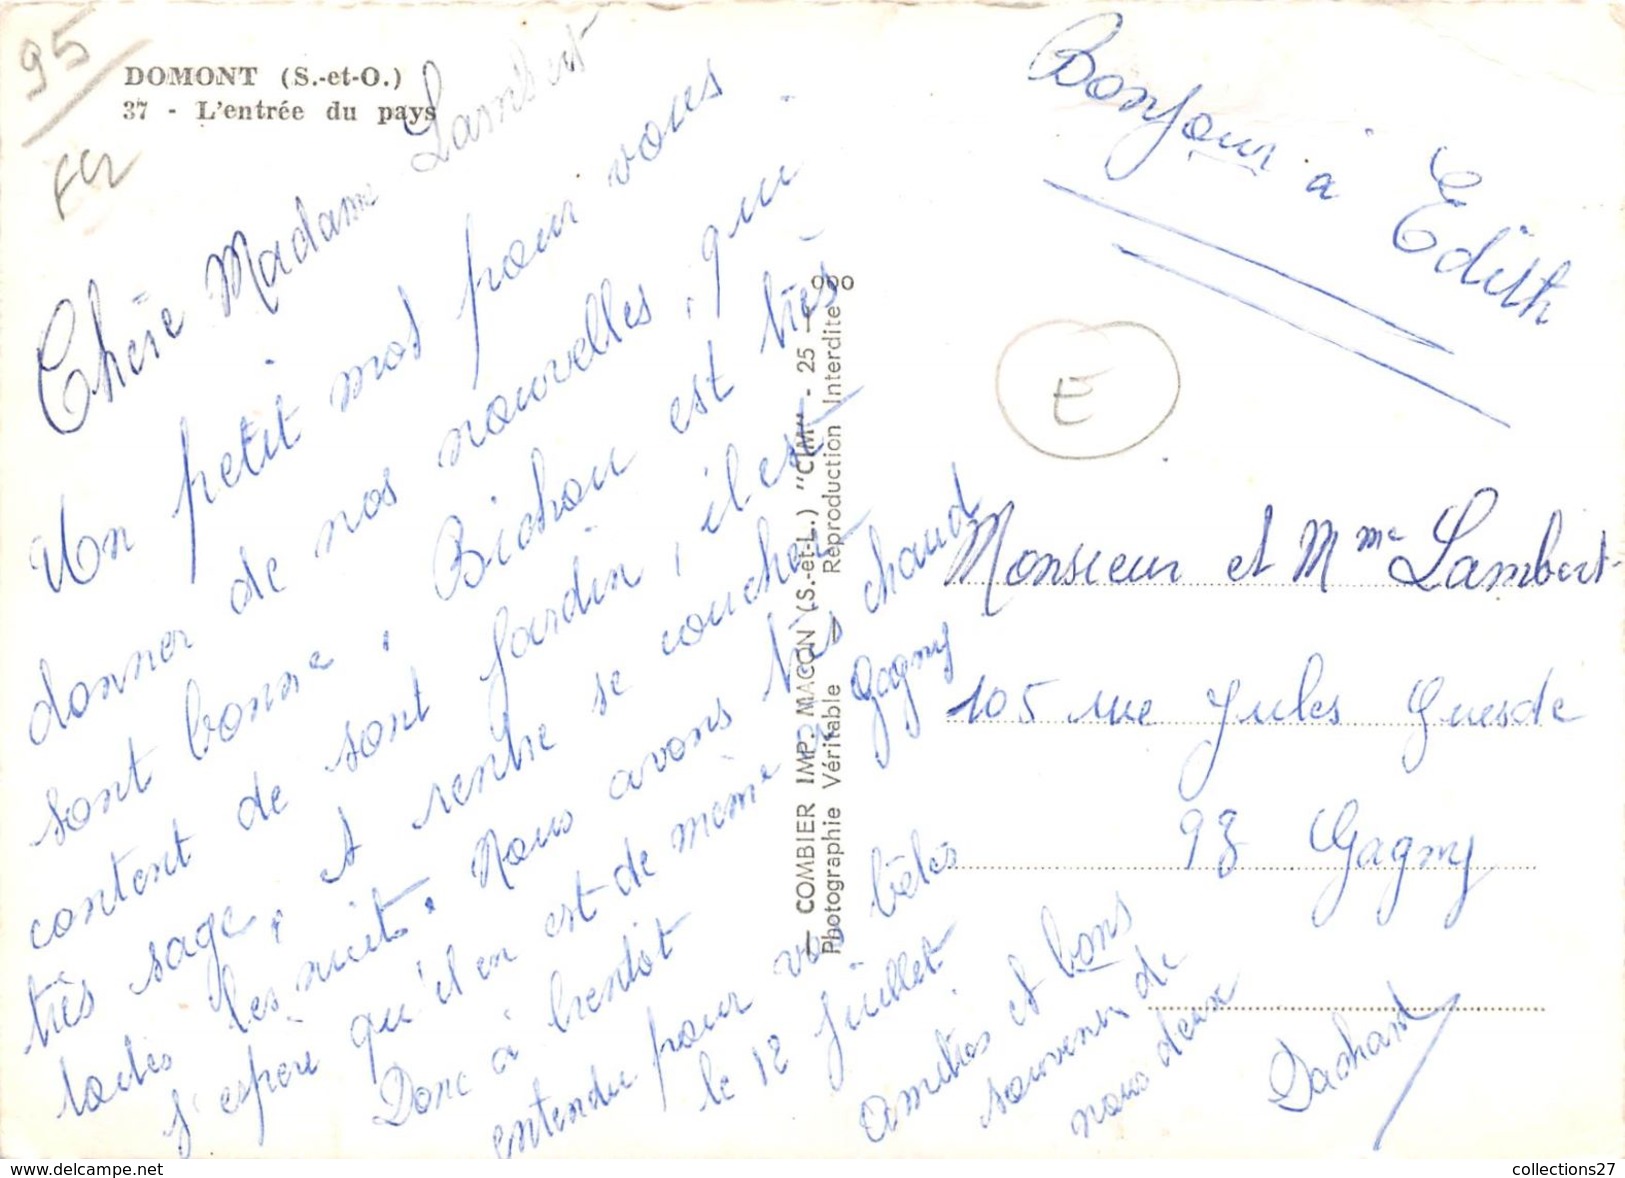 95
DOMONT (S.-et-O.)
37 - L'entrée du pays
Chère Madame Lambert
Un petit mot pour vous
donner de nos nouvelles, qui
sont bonne. Bichou est très
content de sont Jardin, il est
très sage, et rentre se coucher
toutes les nuits. Nous avons très chaud
J'espère qu'il en est de même a Gagny
Donc à bientôt
entendu pour vos bêtes
le 12 Juillet
amitiés et bons
souvenir de
nous deux
Dachard
— COMBIER IMP. MACON (S.-et-L.) "CIM" - 25 — 000
Photographie Véritable — Reproduction Interdite
Bonjour à Edith
E
Monsieur et Mme Lambert
105 rue Jules Guesde
93 Gagny
www.delcampe.net
collections27